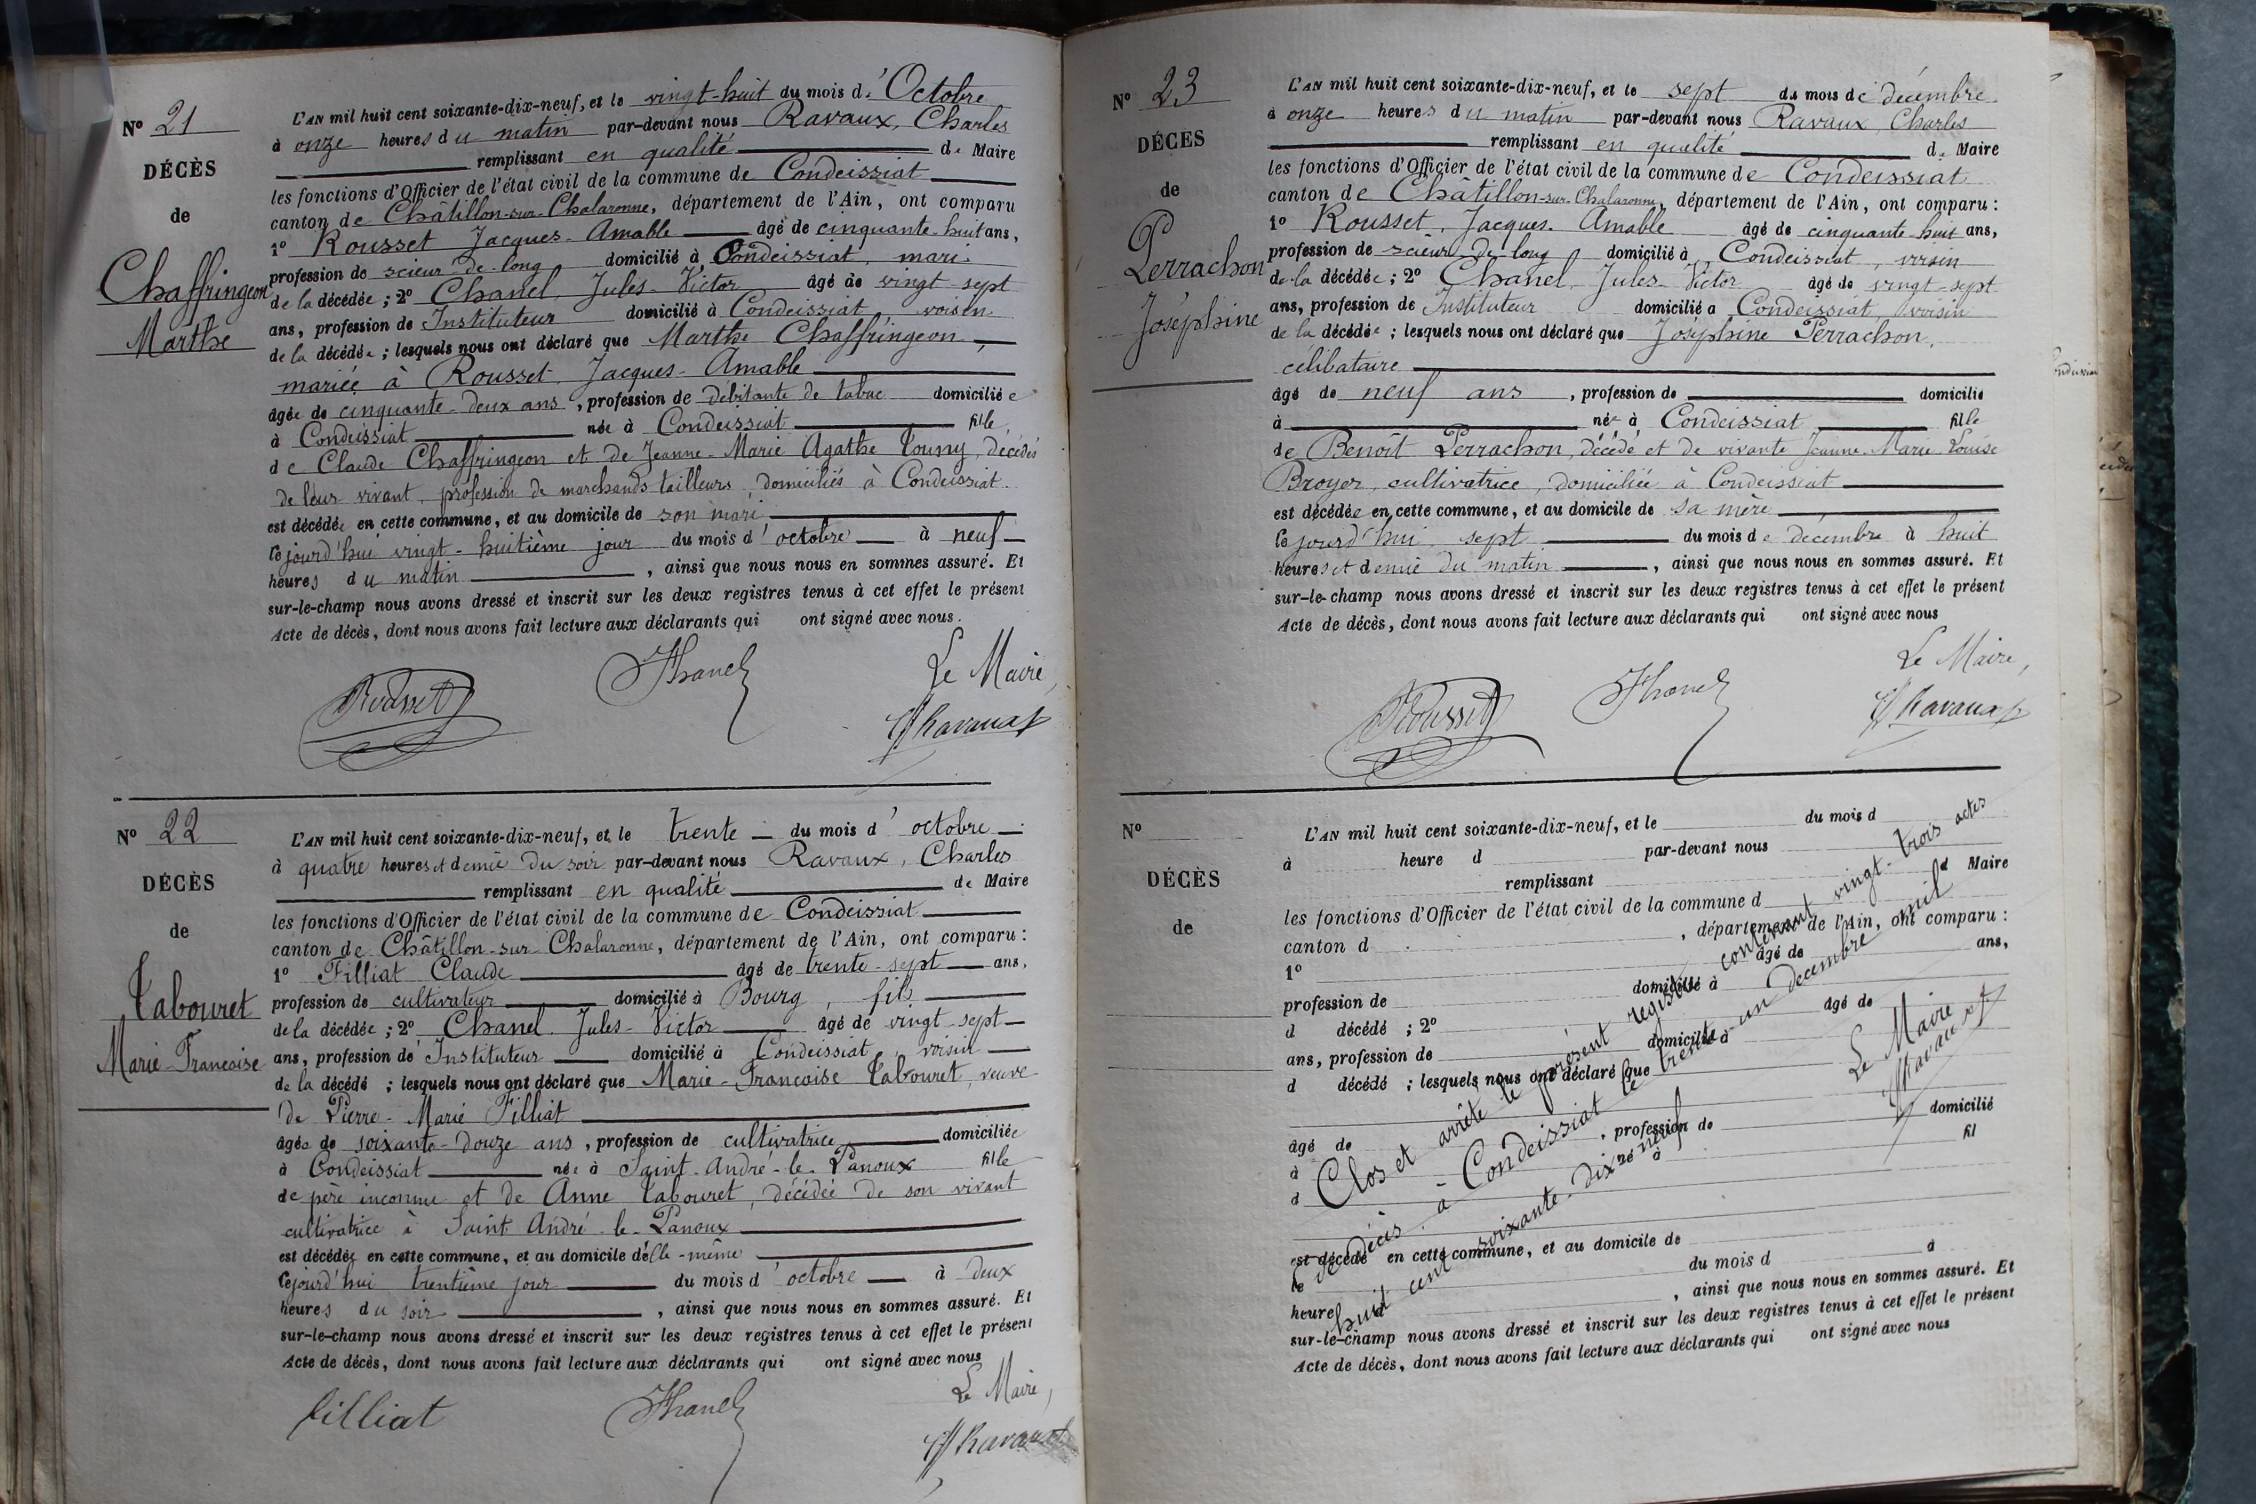 N° 21
DÉCÈS
de
Chaffringeon
Marthe
L'AN mil huit cent soixante-dix-neuf, et le vingt-huit du mois d'Octobre
à onze heures du matin par-devant nous Ravaux, Charles
remplissant en qualité de Maire
les fonctions d'Officier de l'état civil de la commune de Condeissiat
canton de Châtillon-sur-Chalaronne, département de l'Ain, ont comparu
1° Rousset Jacques-Amable âgé de cinquante-huit ans,
profession de scieur de long domicilié à Condeissiat, mari
de la décédée ; 2° Chanel, Jules-Victor âgé de vingt-sept
ans, profession de Instituteur domicilié à Condeissiat, voisin
de la décédée ; lesquels nous ont déclaré que Marthe Chaffringeon,
mariée à Rousset Jacques-Amable
âgée de cinquante-deux ans, profession de débitante de tabac domiciliée
à Condeissiat née à Condeissiat fille
de Claude Chaffringeon et de Jeanne-Marie Agathe Touny, décédés
de leur vivant, profession de marchands tailleurs, domiciliés à Condeissiat.
est décédée en cette commune, et au domicile de son mari
cejourd'hui vingt-huitième jour du mois d'octobre à neuf
heures du matin, ainsi que nous nous en sommes assuré. Et
sur-le-champ nous avons dressé et inscrit sur les deux registres tenus à cet effet le présent
Acte de décès, dont nous avons fait lecture aux déclarants qui ont signé avec nous.
Le Maire,
Rousset JChanel Ravaux
N° 22
DÉCÈS
de
Tabouret
Marie Francoise
L'AN mil huit cent soixante-dix-neuf, et le trente du mois d'octobre
à quatre heures et demie du soir par-devant nous Ravaux, Charles
remplissant en qualité de Maire
les fonctions d'Officier de l'état civil de la commune de Condeissiat
canton de Châtillon-sur-Chalaronne, département de l'Ain, ont comparu :
1° Filliat Claude âgé de trente-sept ans,
profession de cultivateur domicilié à Bourg, fils
de la décédée ; 2° Chanel, Jules-Victor âgé de vingt-sept
ans, profession de Instituteur domicilié à Condeissiat, voisin
de la décédé ; lesquels nous ont déclaré que Marie-Francoise Tabouret, veuve
de Pierre-Marie Filliat
âgée de soixante-douze ans, profession de cultivatrice domiciliée
à Condeissiat née à Saint-André-le-Panoux fille
de père inconnu et de Anne Tabouret, décédée de son vivant
cultivatrice à Saint André-le-Panoux
est décédée en cette commune, et au domicile d'elle-même
cejourd'hui trentième jour du mois d'octobre à deux
heures du soir, ainsi que nous nous en sommes assuré. Et
sur-le-champ nous avons dressé et inscrit sur les deux registres tenus à cet effet le présent
Acte de décès, dont nous avons fait lecture aux déclarants qui ont signé avec nous
Le Maire,
filliat JChanel Ravaux
N° 23
DÉCÈS
de
Perrachon
Joséphine
L'AN mil huit cent soixante-dix-neuf, et le sept du mois de décembre
à onze heures du matin par-devant nous Ravaux, Charles
remplissant en qualité de Maire
les fonctions d'Officier de l'état civil de la commune de Condeissiat
canton de Châtillon-sur-Chalaronne, département de l'Ain, ont comparu :
1° Rousset, Jacques-Amable âgé de cinquante huit ans,
profession de scieur de long domicilié à Condeissiat, voisin
de la décédée ; 2° Chanel, Jules-Victor âgé de vingt-sept
ans, profession de Instituteur domicilié à Condeissiat, voisin
de la décédée ; lesquels nous ont déclaré que Joséphine Perrachon,
célibataire
âgé de neuf ans, profession de domicilié
à née à Condeissiat fille
de Benoît Perrachon, décédé et de vivante Jeanne-Marie-Louise
Broyer, cultivatrice, domiciliée à Condeissiat
est décédée en cette commune, et au domicile de sa mère
cejourd'hui sept du mois de décembre à huit
heures et demie du matin, ainsi que nous nous en sommes assuré. Et
sur-le-champ nous avons dressé et inscrit sur les deux registres tenus à cet effet le présent
Acte de décès, dont nous avons fait lecture aux déclarants qui ont signé avec nous
Le Maire,
Rousset JChanel Ravaux
N°
DÉCÈS
de
L'AN mil huit cent soixante-dix-neuf, et le du mois d
à heure d par-devant nous
remplissant d Maire
les fonctions d'Officier de l'état civil de la commune d
canton d , département de l'Ain, ont comparu :
1° âgé de ans,
profession de domicilié à
d décédé ; 2° âgé de
ans, profession de domicilié à
d décédé ; lesquels nous ont déclaré que
âgé de , profession de domicilié
à né à fil
d
est décédé en cette commune, et au domicile de
le du mois d à
heure d , ainsi que nous nous en sommes assuré. Et
sur-le-champ nous avons dressé et inscrit sur les deux registres tenus à cet effet le présent
Acte de décès, dont nous avons fait lecture aux déclarants qui ont signé avec nous
Clos et arrêté le présent registre contenant vingt-trois actes
de décès, à Condeissiat le trente-un décembre mil
huit cent soixante-dix-neuf
Le Maire
Ravaux